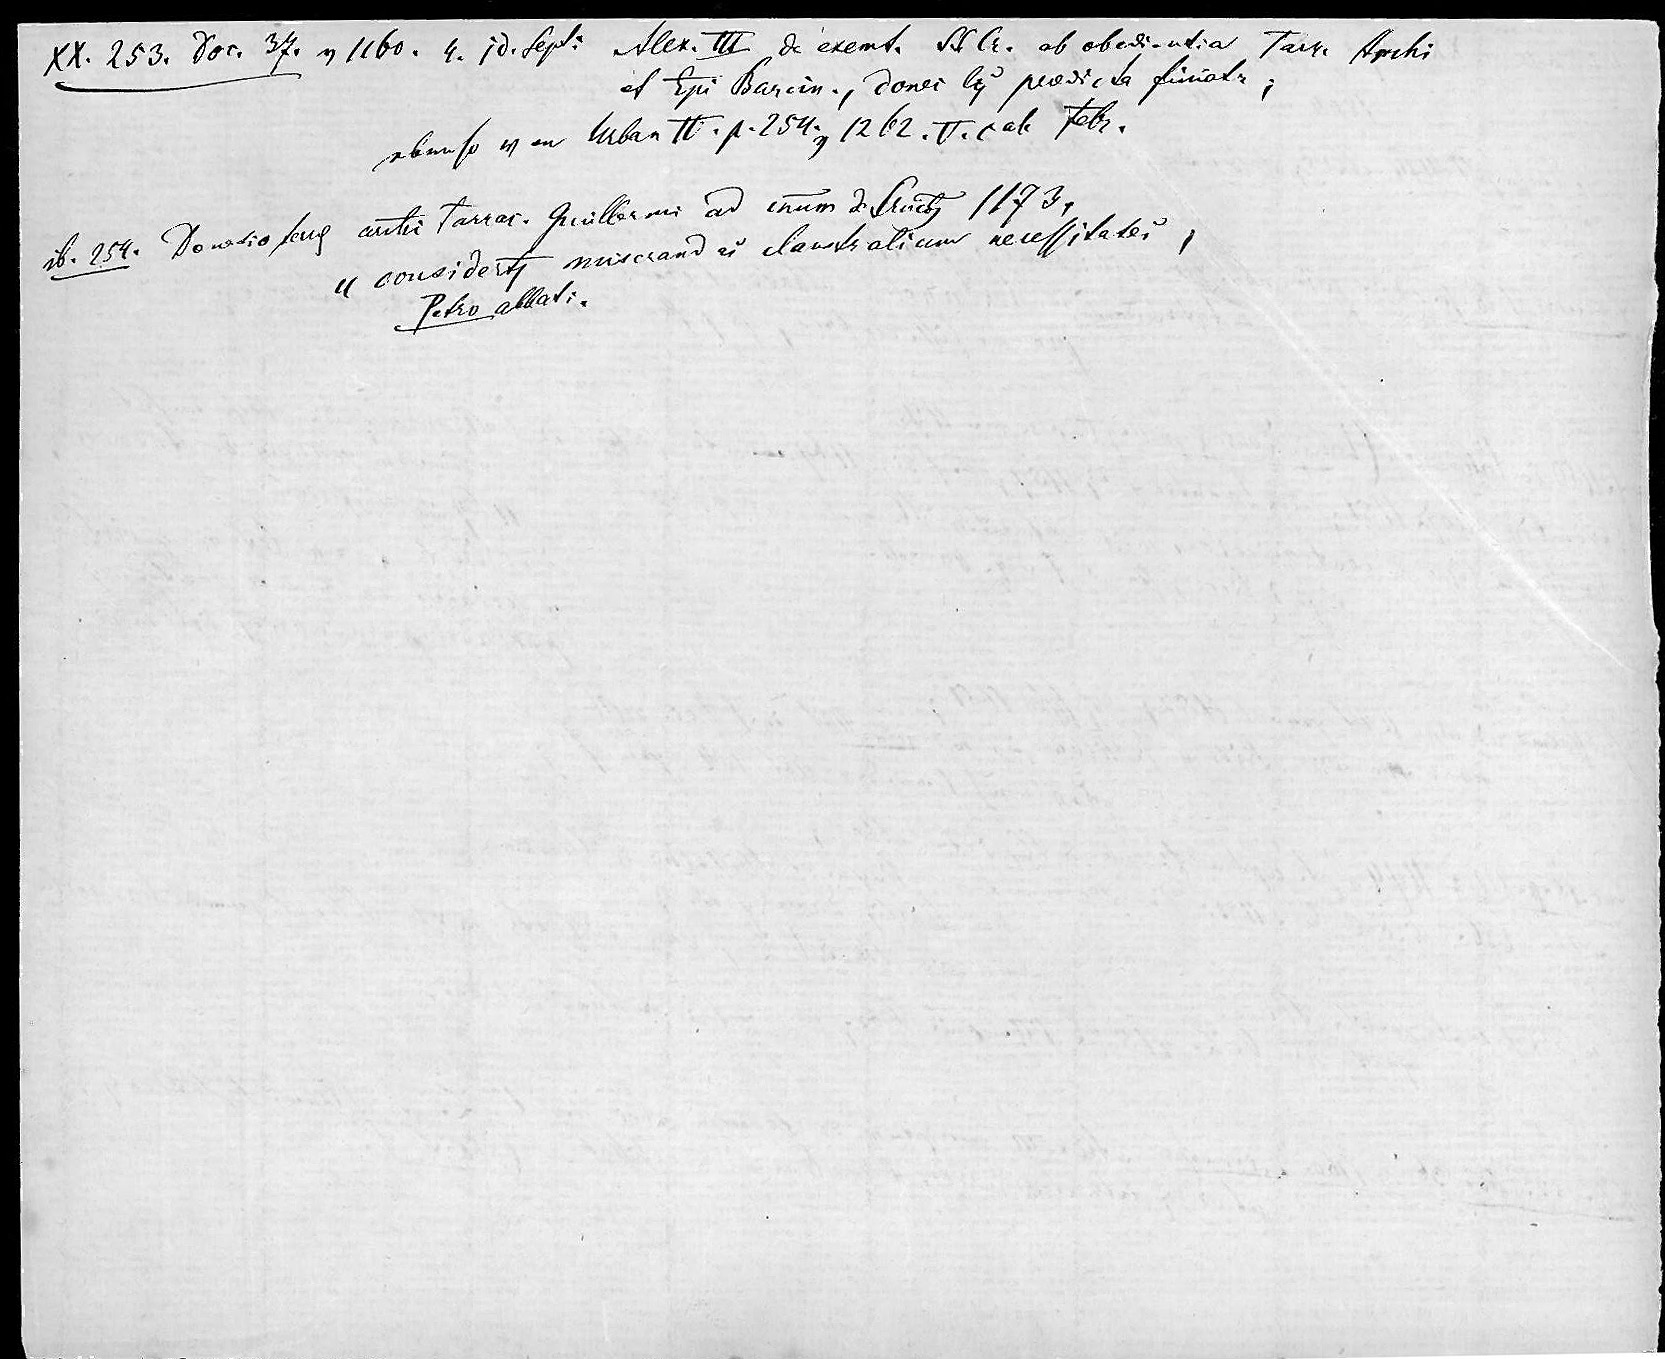 XX. 253. Doc. 37. v 1160. 4. id. Sept. Alex. III de exemt. SS Cr. ab obedientia Tarr. Archi
et Epi Barcin., donec lis praedicta finiatr;
ebenso v on Urban IV. p. 254. v 1262. V. cal. Febr.
ib. 254. Donatio archi Tarrac. Guillermi ad de 1173,
" miserandas claustralium necessitates,
Petro abbati.